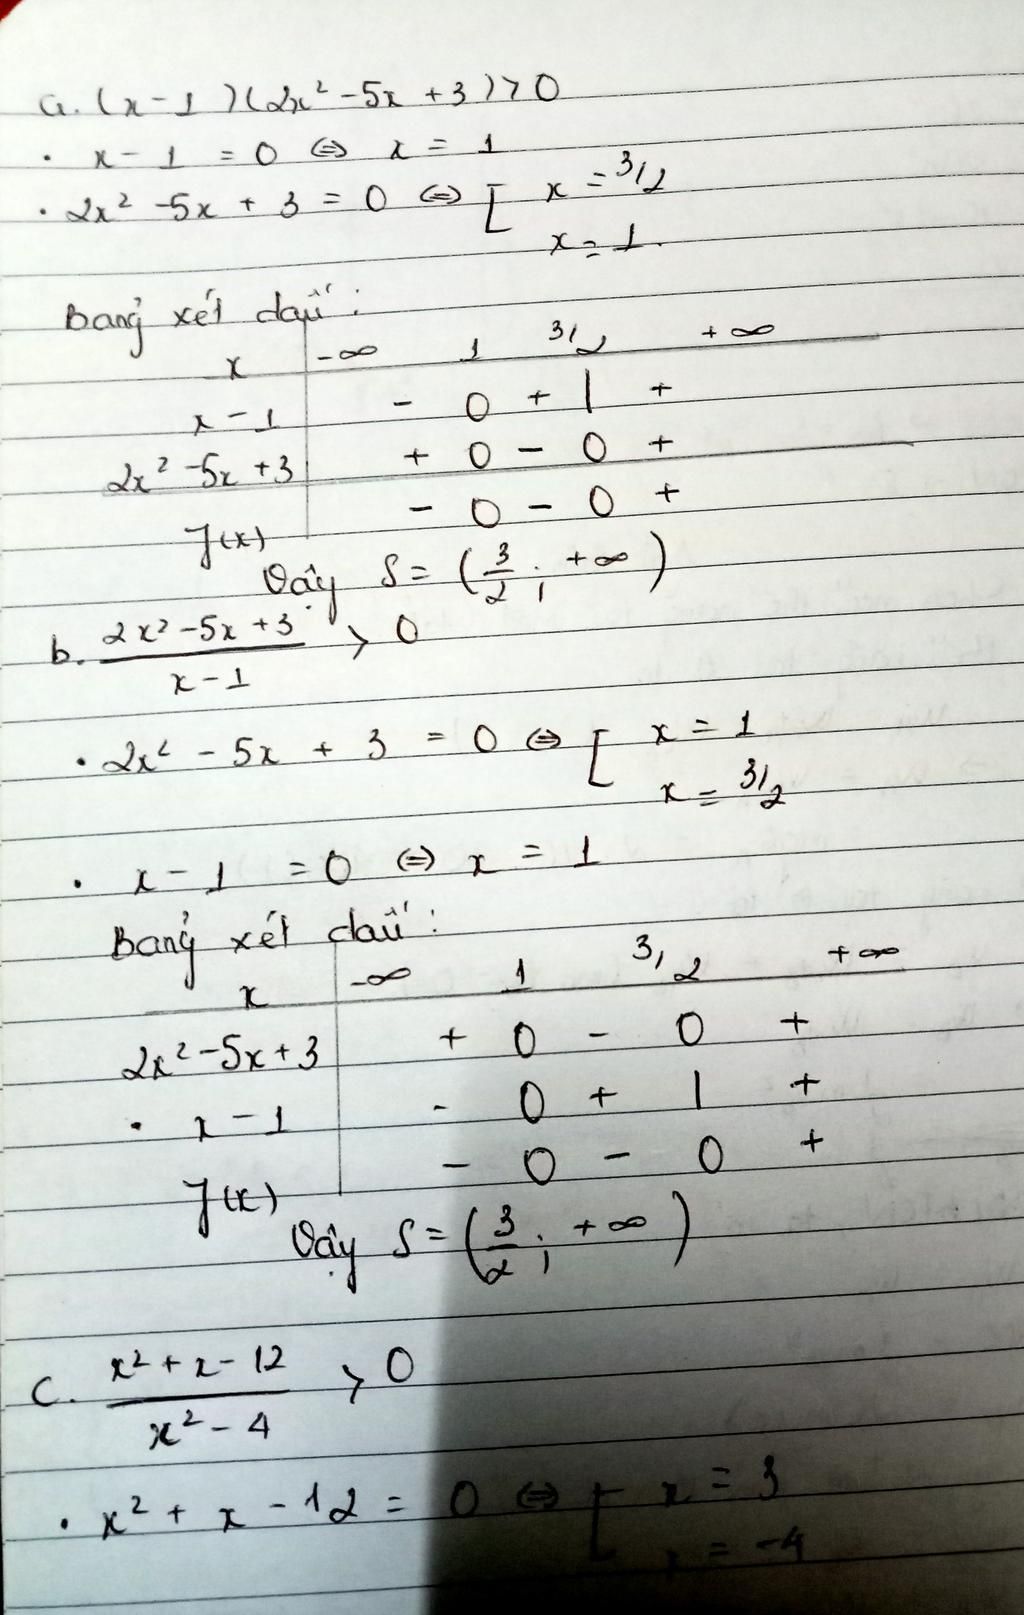 a. (x-1)(2x² -5x +3) > 0
• x-1 = 0 ⇔ x = 1
• 2x² -5x + 3 = 0 ⇔ [ x = 3/2
x = 1.
Bảng xét dấu :
x -∞ 1 3/2 +∞
x-1 - 0 + | +
2x² -5x +3 + 0 - 0 +
f(x) - 0 - 0 +
Vậy S = (3/2 ; +∞)
b. (2x² -5x +3)/(x-1) > 0
• 2x² - 5x + 3 = 0 ⇔ [ x = 1
x = 3/2
• x-1 = 0 ⇔ x = 1
Bảng xét dấu :
x -∞ 1 3/2 +∞
2x² -5x +3 + 0 - 0 +
• x-1 - 0 + | +
f(x) - 0 - 0 +
Vậy S = (3/2 ; +∞)
c. (x² + x - 12)/(x² - 4) > 0
• x² + x - 12 = 0 ⇔ [ x = 3
x = -4